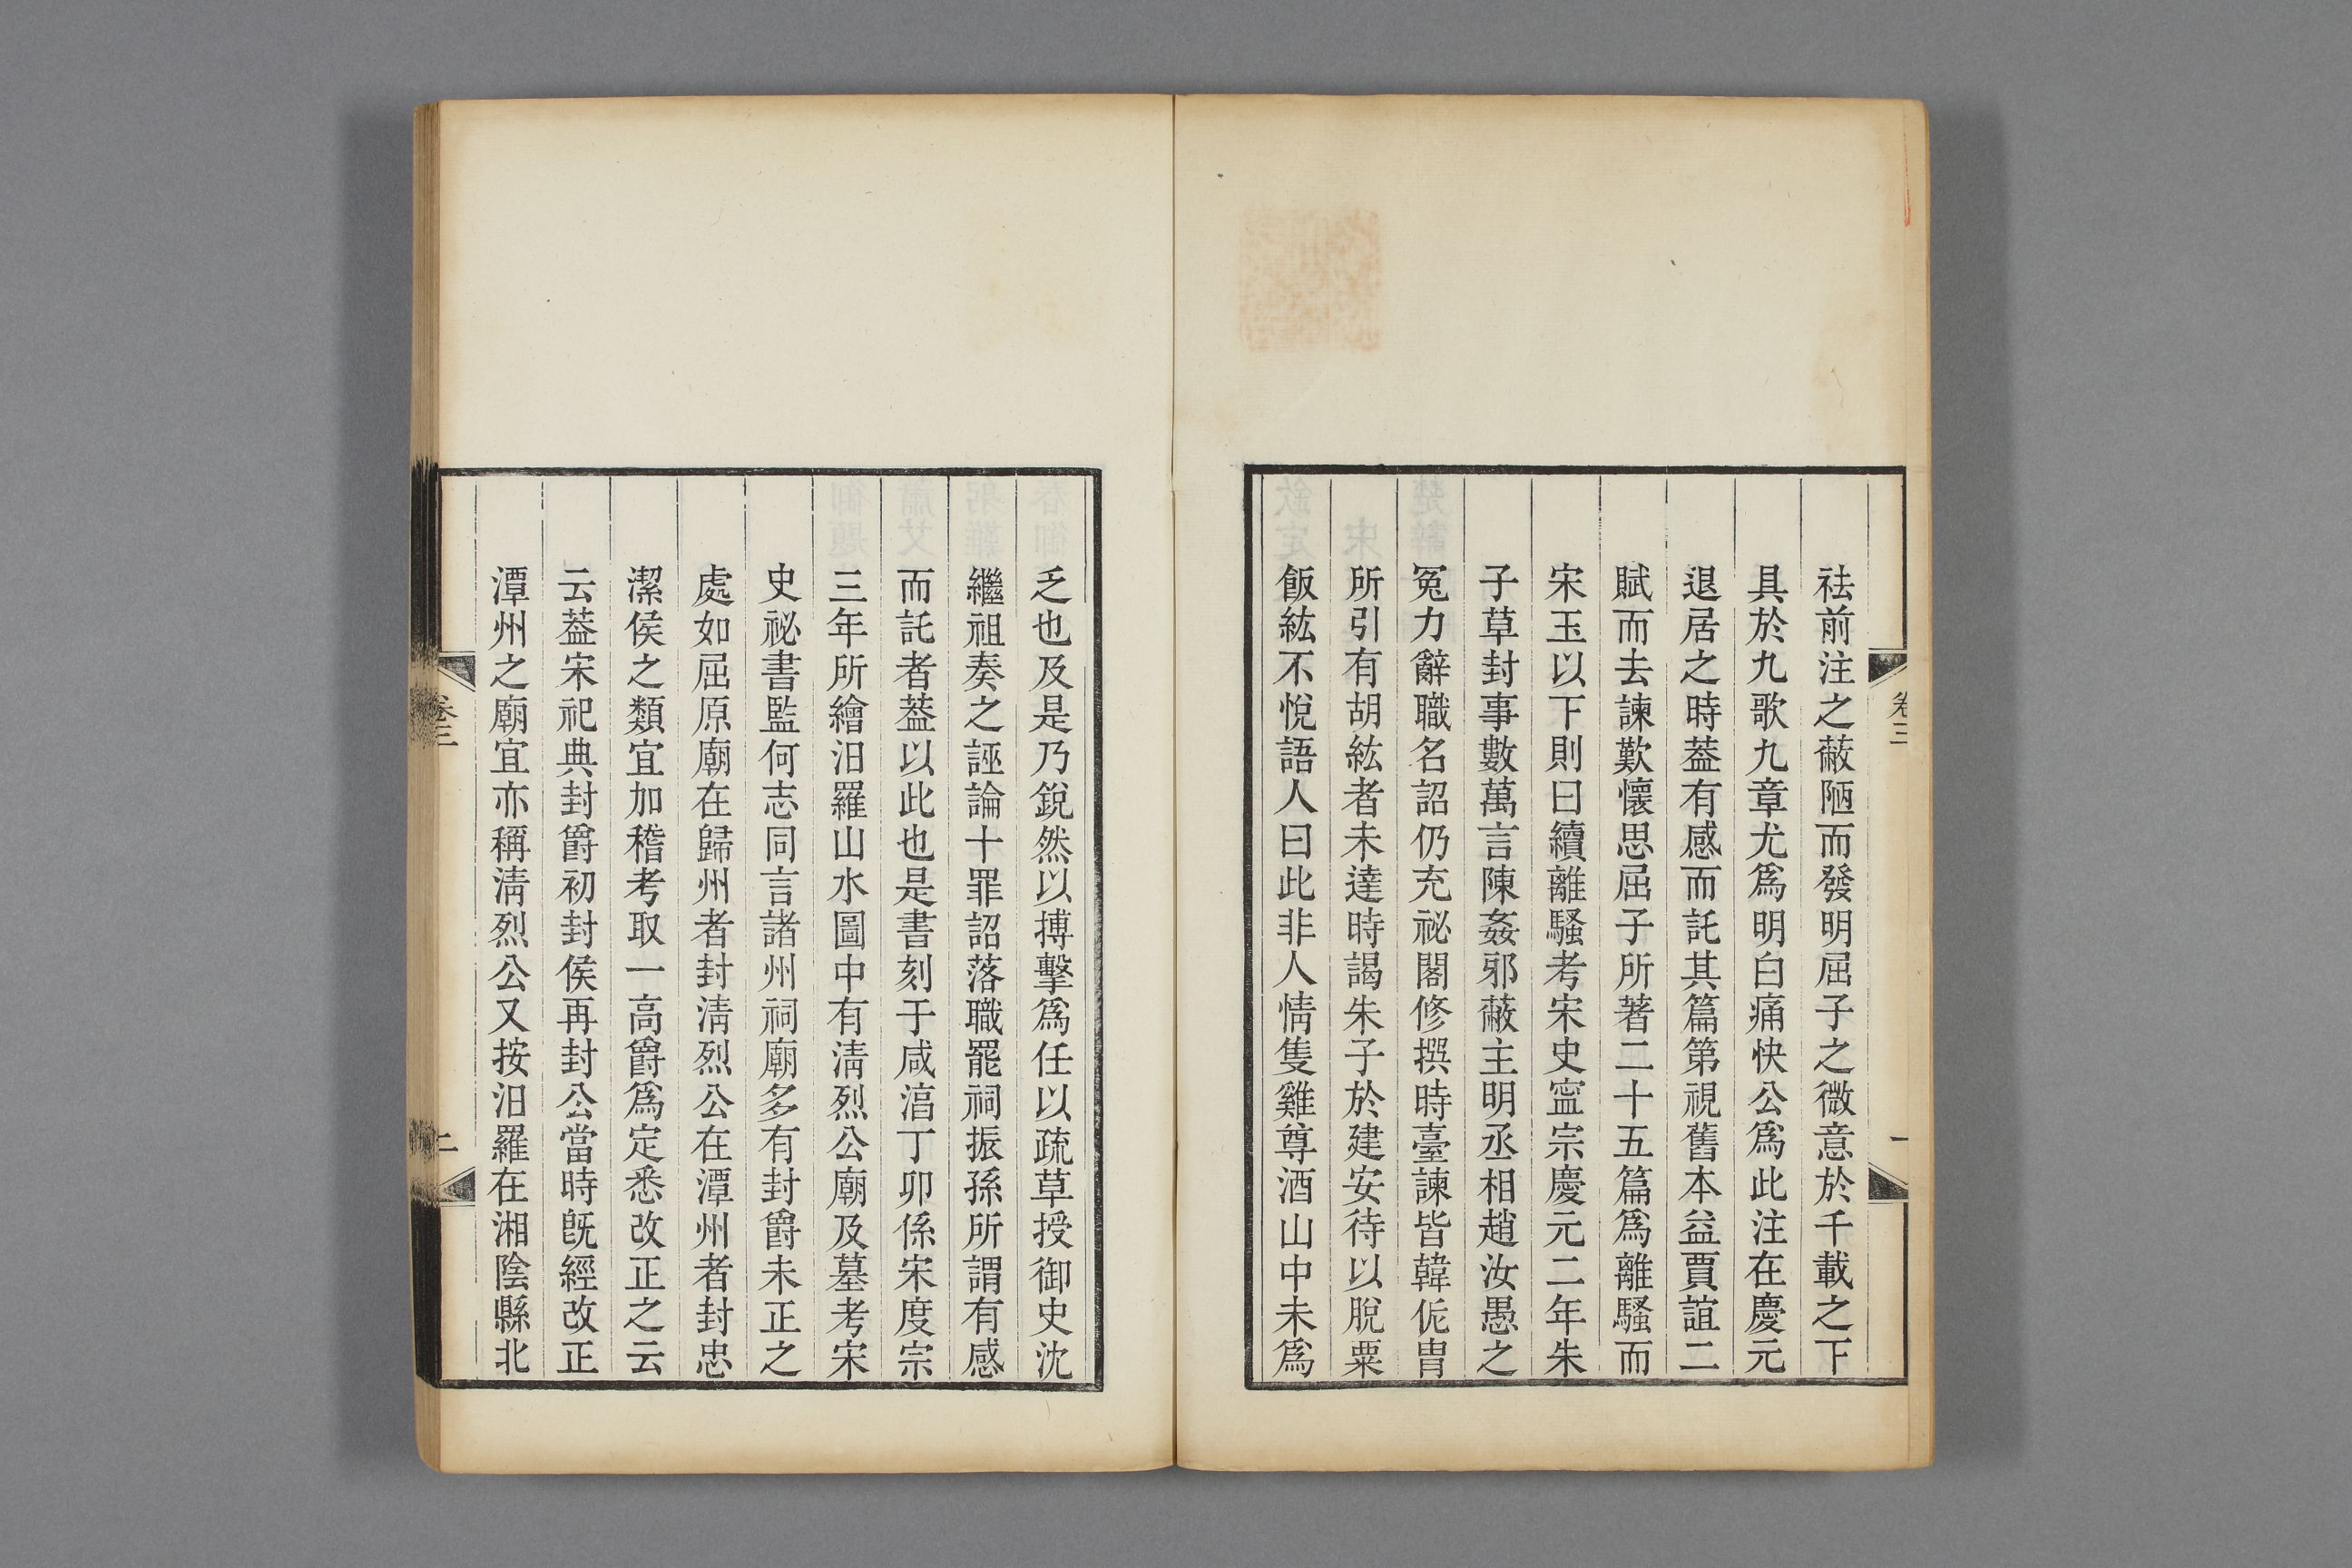 卷三
一
祛前注之蔽陋而發明屈子之微意於千載之下
具於九歌九章尤爲明白痛快公爲此注在慶元
退居之時葢有感而託其篇第視舊本益賈誼二
賦而去諫歎懷思屈子所著二十五篇爲離騷而
宋玉以下則曰續離騷考宋史寍宗慶元二年朱
子草封事數萬言陳姦邪蔽主明丞相趙汝愚之
冤力辭職名詔仍充祕閣修撰時臺諫皆韓侂胄
所引有胡紘者未達時謁朱子於建安待以脫粟
飯紘不悅語人曰此非人情隻雞尊酒山中未爲
乏也及是乃銳然以搏擊爲任以疏草授御史沈
繼祖奏之誣論十罪詔落職罷祠振孫所謂有感
而託者葢以此也是書刻于咸湻丁卯係宋度宗
三年所繪汨羅山水圖中有淸烈公廟及墓考宋
史祕書監何志同言諸州祠廟多有封爵未正之
處如屈原廟在歸州者封淸烈公在潭州者封忠
潔侯之類宜加稽考取一高爵爲定悉改正之云
云葢宋祀典封爵初封侯再封公當時旣經改正
潭州之廟宜亦稱淸烈公又按汨羅在湘陰縣北
卷三
二